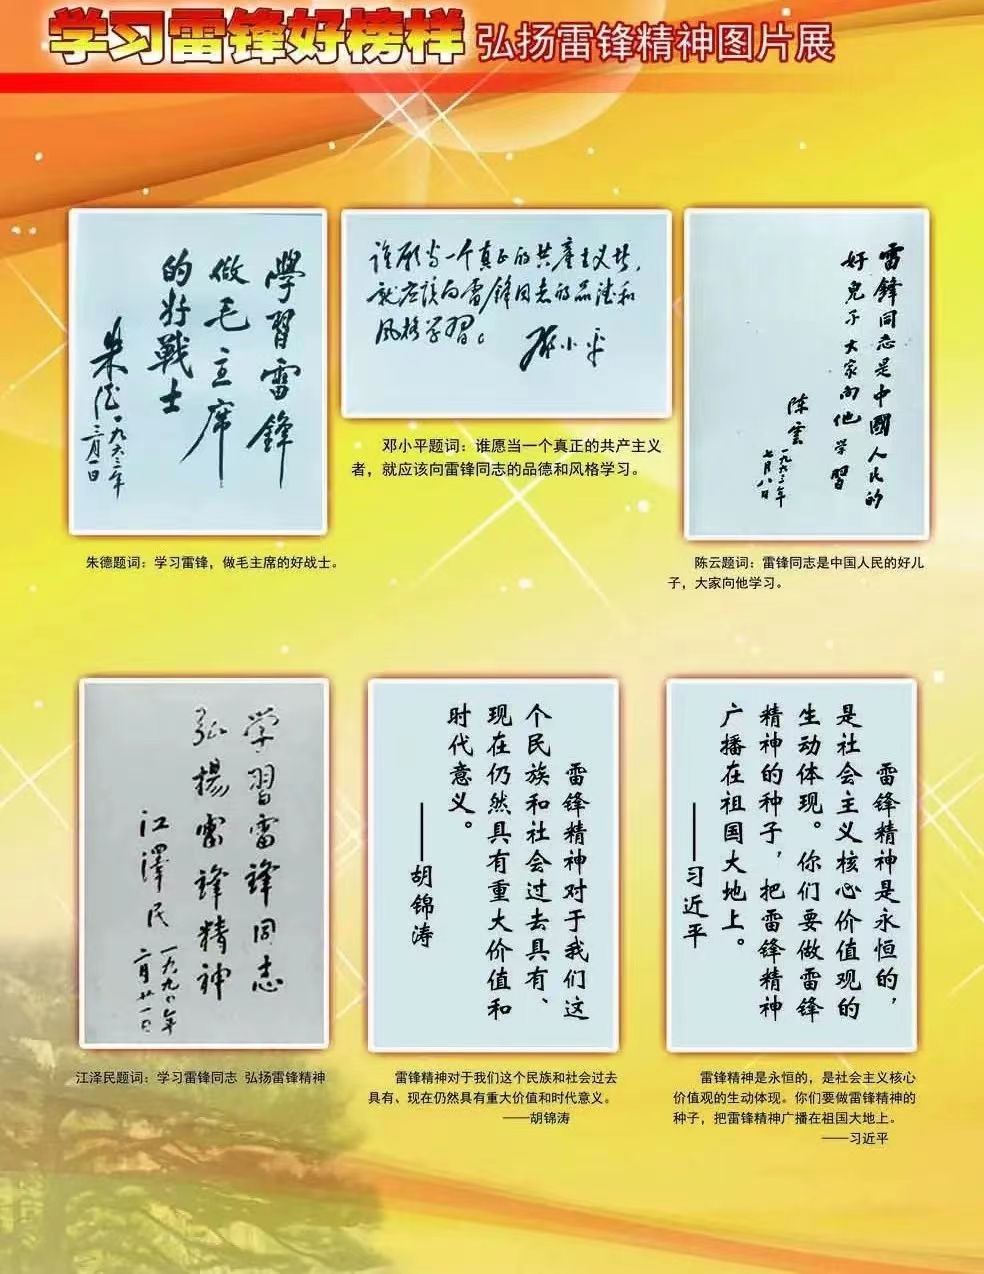 学习雷锋好榜样 弘扬雷锋精神图片展
學習雷鋒
做毛主席
的好戰士
朱德
一九六三年
三月一日
谁愿当一个真正的共產主义者，
就应该向雷锋同志的品德和
风格学習。
邓小平
雷鋒同志是中國人民的
好兒子大家向他学習
陈雲
一九六三年
七月八日
邓小平题词：谁愿当一个真正的共产主义
者，就应该向雷锋同志的品德和风格学习。
朱德题词：学习雷锋，做毛主席的好战士。
陈云题词：雷锋同志是中国人民的好儿
子，大家向他学习。
学習雷锋同志
弘揚雷锋精神
江澤民
一九九〇年
二月廿一日
雷锋精神对于我们这
个民族和社会过去具有、
现在仍然具有重大价值和
时代意义。
——胡锦涛
雷锋精神是永恒的，
是社会主义核心价值观的
生动体现。你们要做雷锋
精神的种子，把雷锋精神
广播在祖国大地上。
——习近平
江泽民题词：学习雷锋同志 弘扬雷锋精神
雷锋精神对于我们这个民族和社会过去
具有、现在仍然具有重大价值和时代意义。
——胡锦涛
雷锋精神是永恒的，是社会主义核心
价值观的生动体现。你们要做雷锋精神的
种子，把雷锋精神广播在祖国大地上。
——习近平